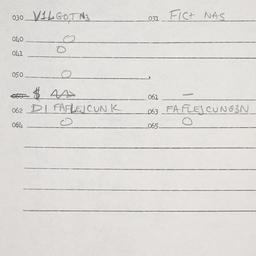 030 V1LGOTN3 031 FICT NAS
040 O
041 O
050 O
$ 061 —
062 DI FAFLEJCUNK 063 FAFLEJCUNG3N
064 O 065 O